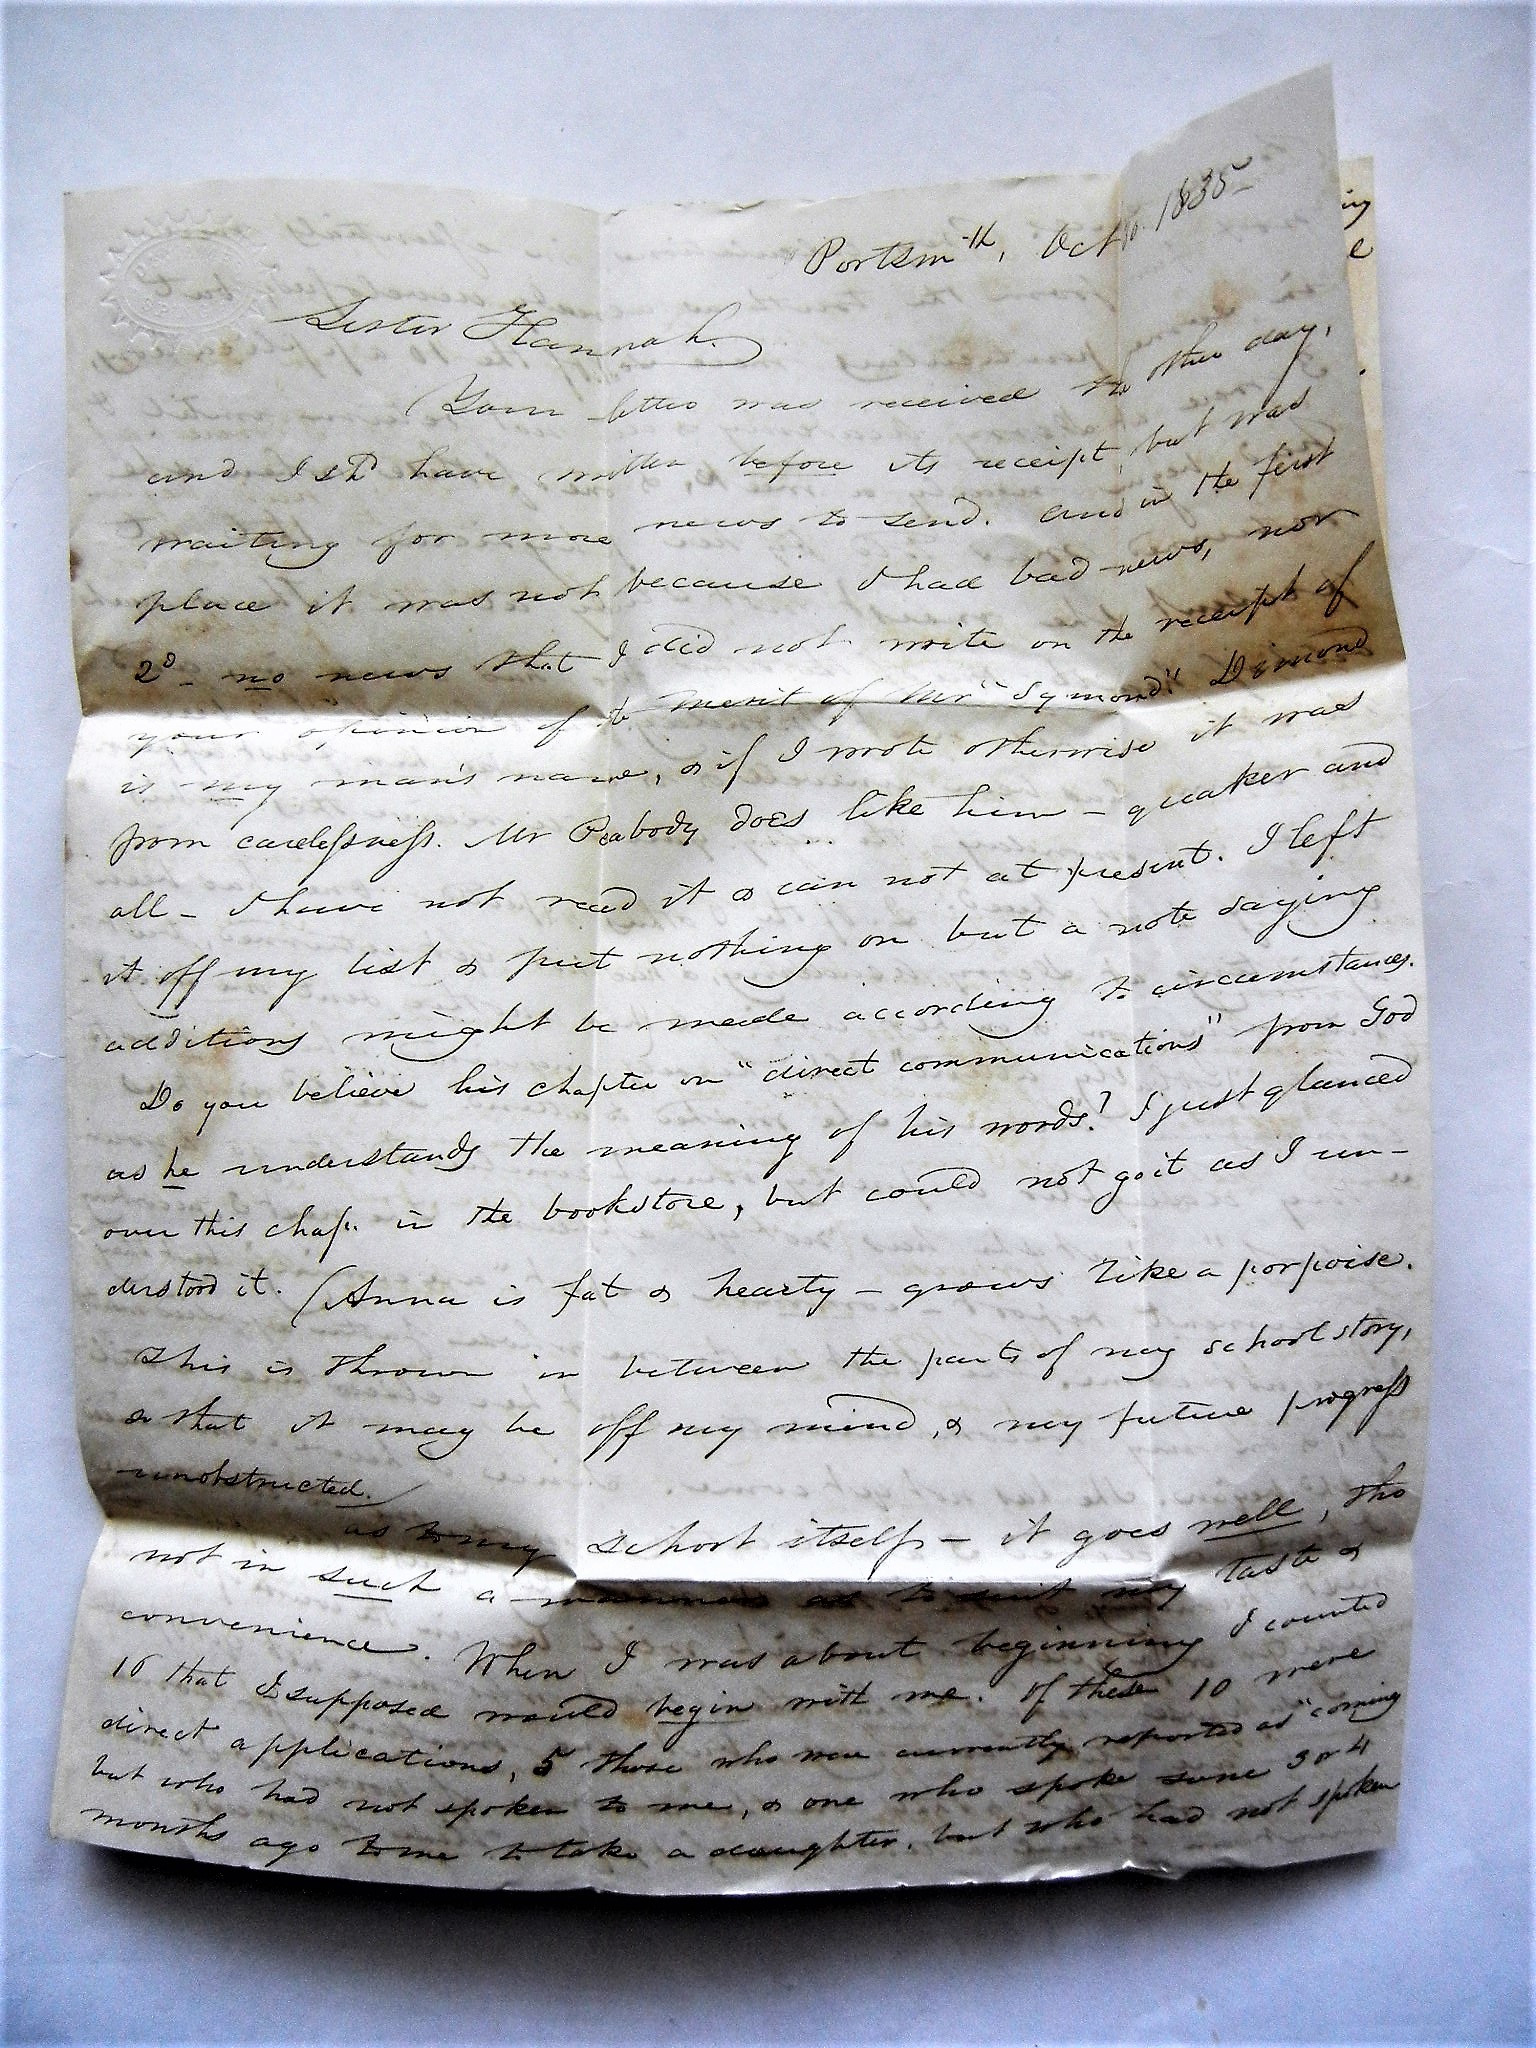 Portsmth, Oct 10. 1835
Sister Hannah.
Your letter was received the other day,
and I shd have written before its receipt, but was
waiting for more news to send. And in the first
place it was not because I had bad news, nor
2d no news that I did not write on the receipt of
your opinion of the merit of Mr "Symond." Dimond
is my man's name, & if I wrote otherwise it was
from carelessness. Mr Peabody does like him – quaker and
all – I have not read it & can not at present. I left
it off my list & put nothing on but a note saying
additions might be made according to circumstances.
Do you believe his chapter on "direct communications" from God
as he understands the meaning of his words? I just glanced
over this chap. in the bookstore, but could not go it as I un–
derstood it. (Anna is fat & hearty – grows like a porpoise.
This is thrown in between the parts of my school story,
so that it may be off my mind, & my future progress
unobstructed.)
as to my school itself – it goes well, tho
not in such a manner as to suit my taste &
convenience. When I was about beginning I counted
16 that I supposed would begin with me. Of these 10 were
direct applications, 5 those who were currently reported as "coming
but who had not spoken to me, & one who spoke some 3 or 4
months ago to me to take a daughter, but who had not spoken